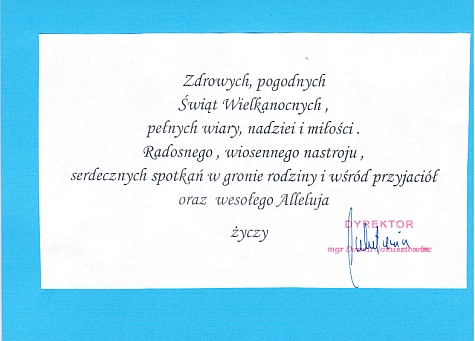 Zdrowych, pogodnych
Świąt Wielkanocnych ,
pełnych wiary, nadziei i miłości .
Radosnego , wiosennego nastroju ,
serdecznych spotkań w gronie rodziny i wśród przyjaciół
oraz wesołego Alleluja
życzy
DYREKTOR
mgr